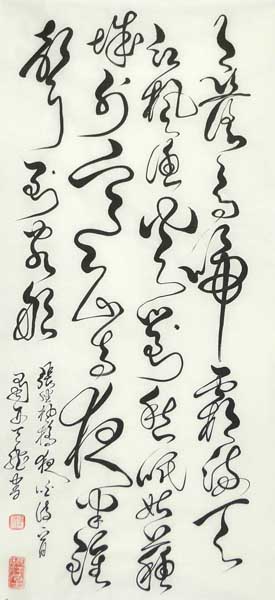 月落烏啼霜滿天
江楓漁火對愁眠姑蘇
城外寒山寺夜半鐘
聲到客船
張繼楓橋夜泊詩一首
書